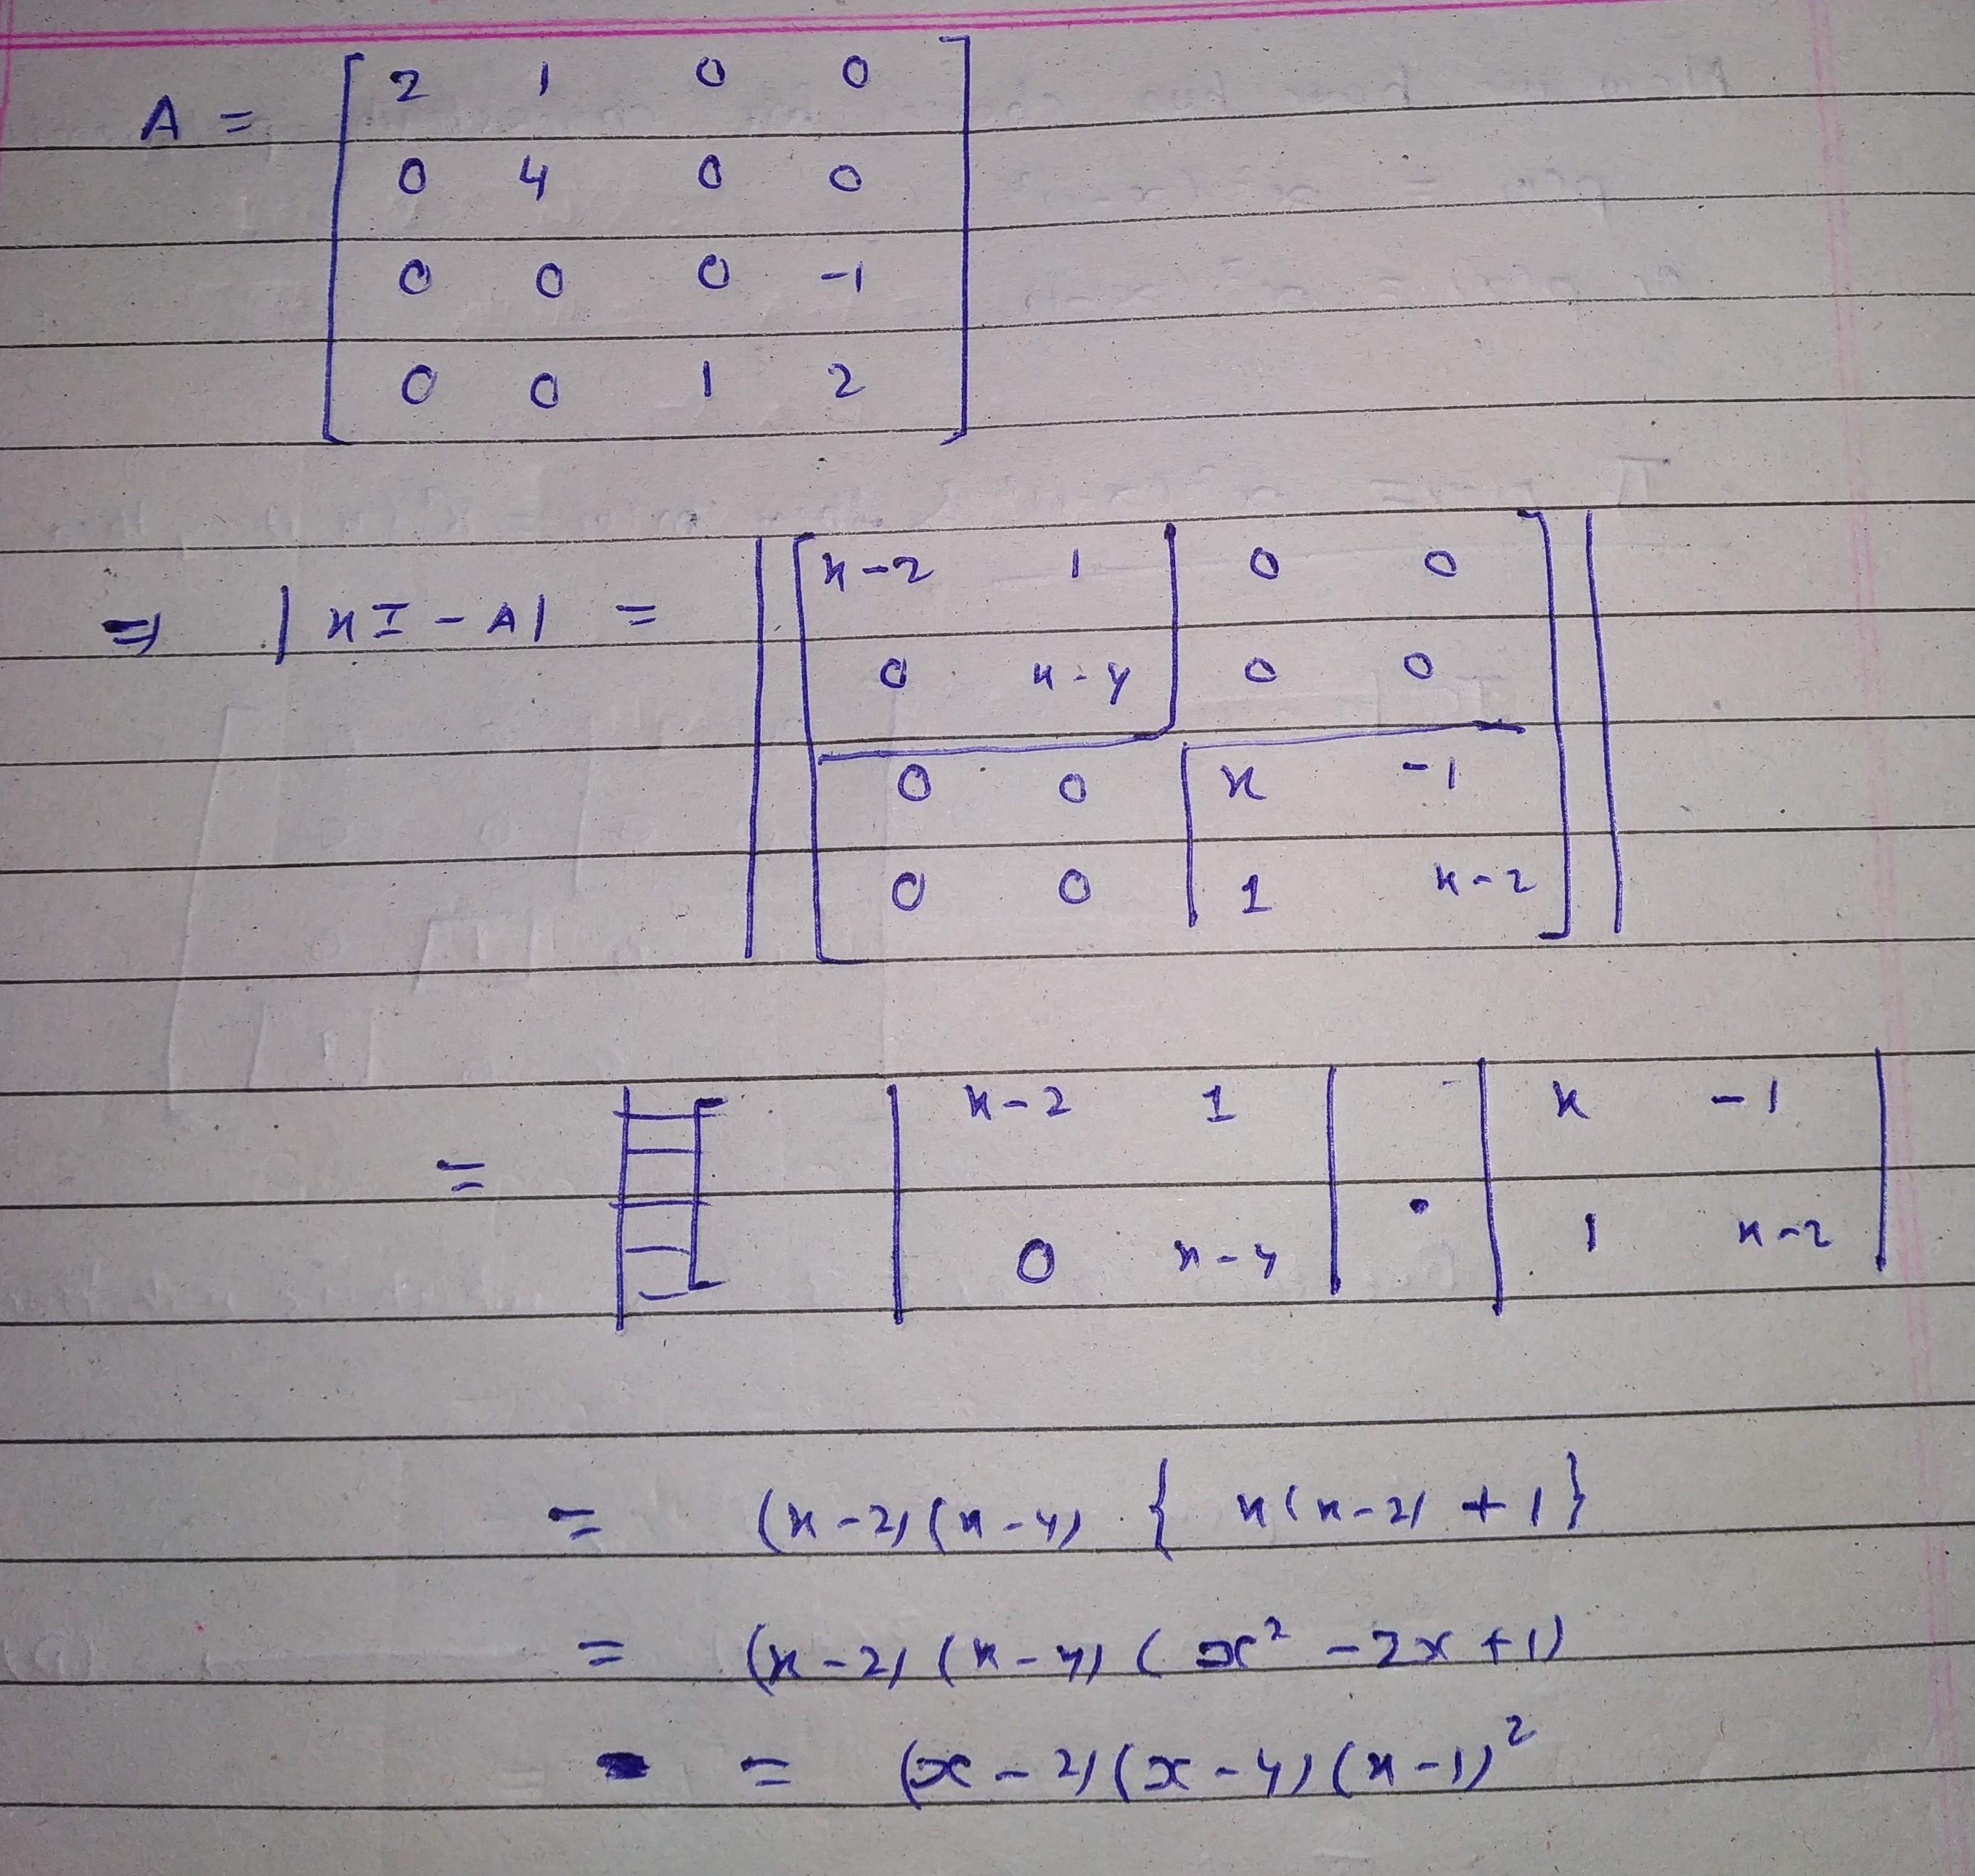 A = [ 2 1 0 0
0 4 0 0
0 0 0 -1
0 0 1 2 ]
⇒ |xI - A| = | [ x-2 1 0 0
0 x-4 0 0
0 0 x -1
0 0 1 x-2 ] |
= | x-2 1 | · | x -1 |
| 0 x-4 | | 1 x-2 |
= (x-2)(x-4) { x(x-2) + 1 }
= (x-2)(x-4)(x² - 2x + 1)
= (x-2)(x-4)(x-1)²